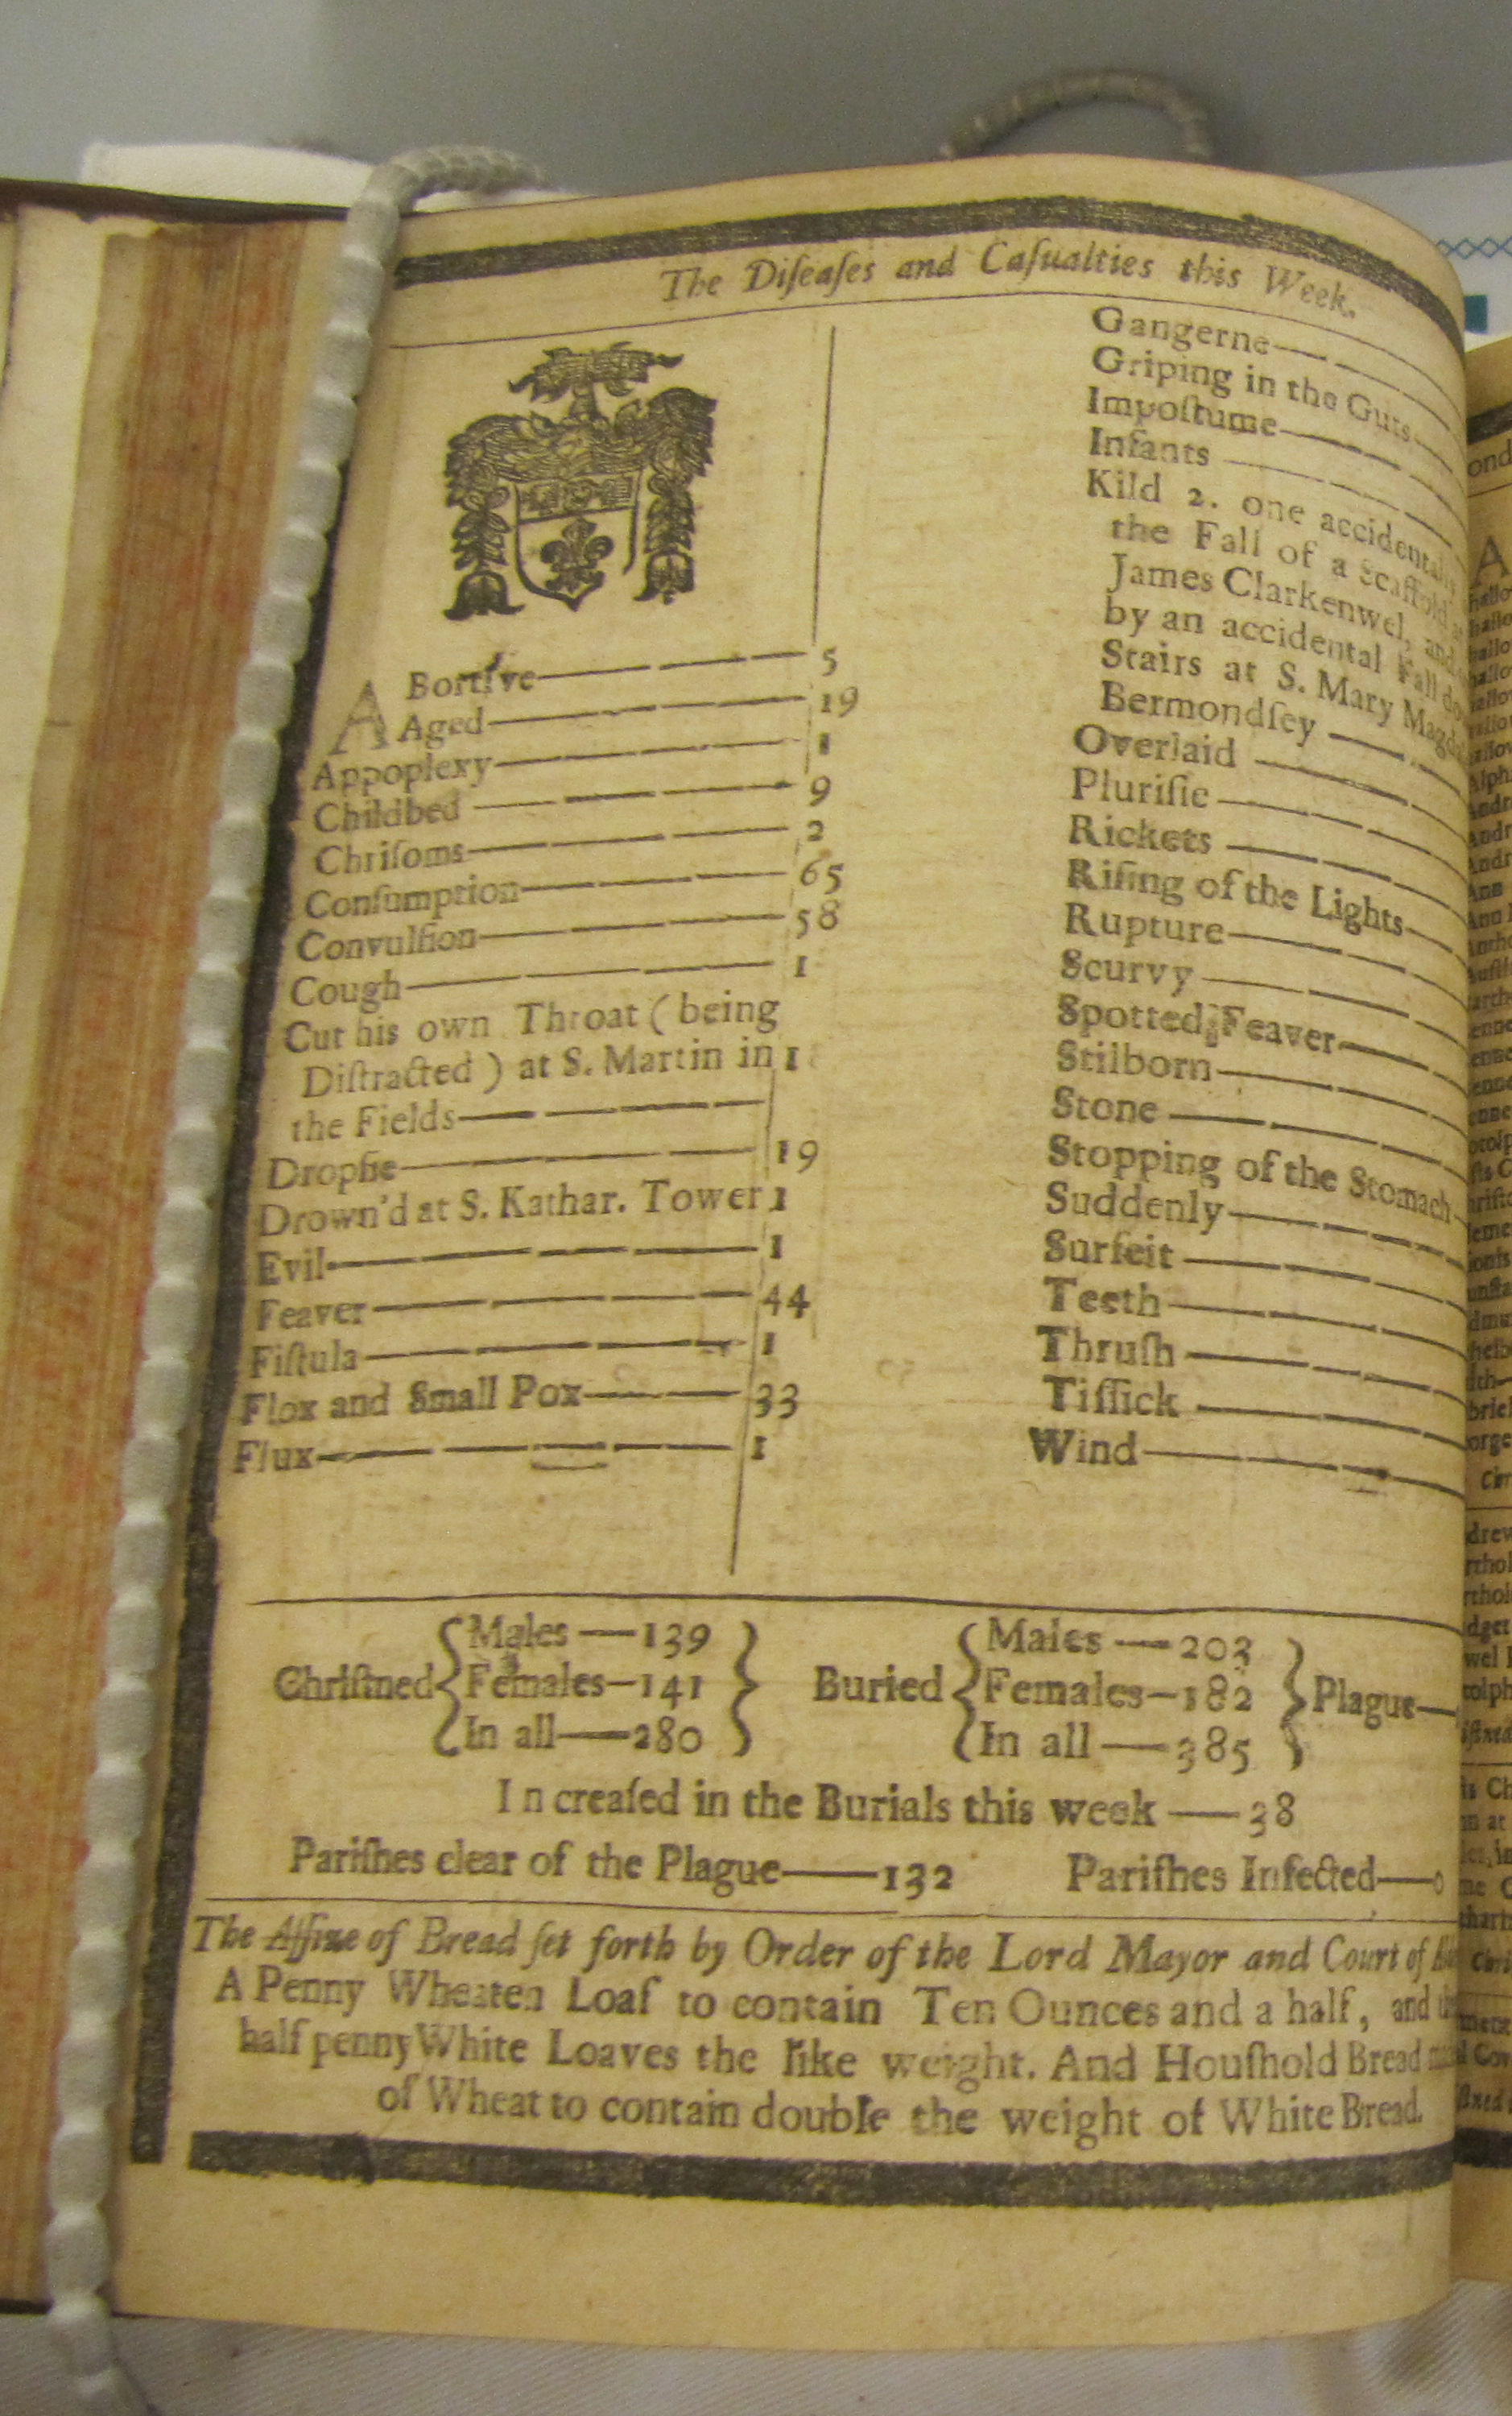 The Diſeaſes and Caſualties this Week.
ABortive 5
Aged 19
Appoplexy 1
Childbed 9
Chriſoms 2
Conſumption 65
Convulſion 58
Cough 1
Cut his own Throat (being
Diſtracted) at S. Martin in 1
the Fields
Dropſie 19
Drown'd at S. Kathar. Tower 1
Evil 1
Feaver 44
Fiſtula 1
Flox and Small Pox 33
Flux 1
Gangerne
Griping in the Guts
Impoſtume
Infants
Kild 2. one accidentally
the Fall of a Scaffold
James Clarkenwel, and
by an accidental Fall
Stairs at S. Mary
Bermondſey
Overlaid
Pluriſie
Rickets
Riſing of the Lights
Rupture
Scurvy
Spotted Feaver
Stilborn
Stone
Stopping of the Stomach
Suddenly
Surfeit
Teeth
Thruſh
Tiſſick
Wind
Chriſtned
Males—139
Females—141
In all—280
Buried
Males—203
Females—182
In all—385
Plague—
Increaſed in the Burials this week—38
Pariſhes clear of the Plague—132 Pariſhes Infected—0
The Aſſize of Bread ſet forth by Order of the Lord Mayor and Court of
A Penny Wheaten Loaf to contain Ten Ounces and a half, and
half penny White Loaves the like weight. And Houſhold Bread
of Wheat to contain double the weight of White Bread.